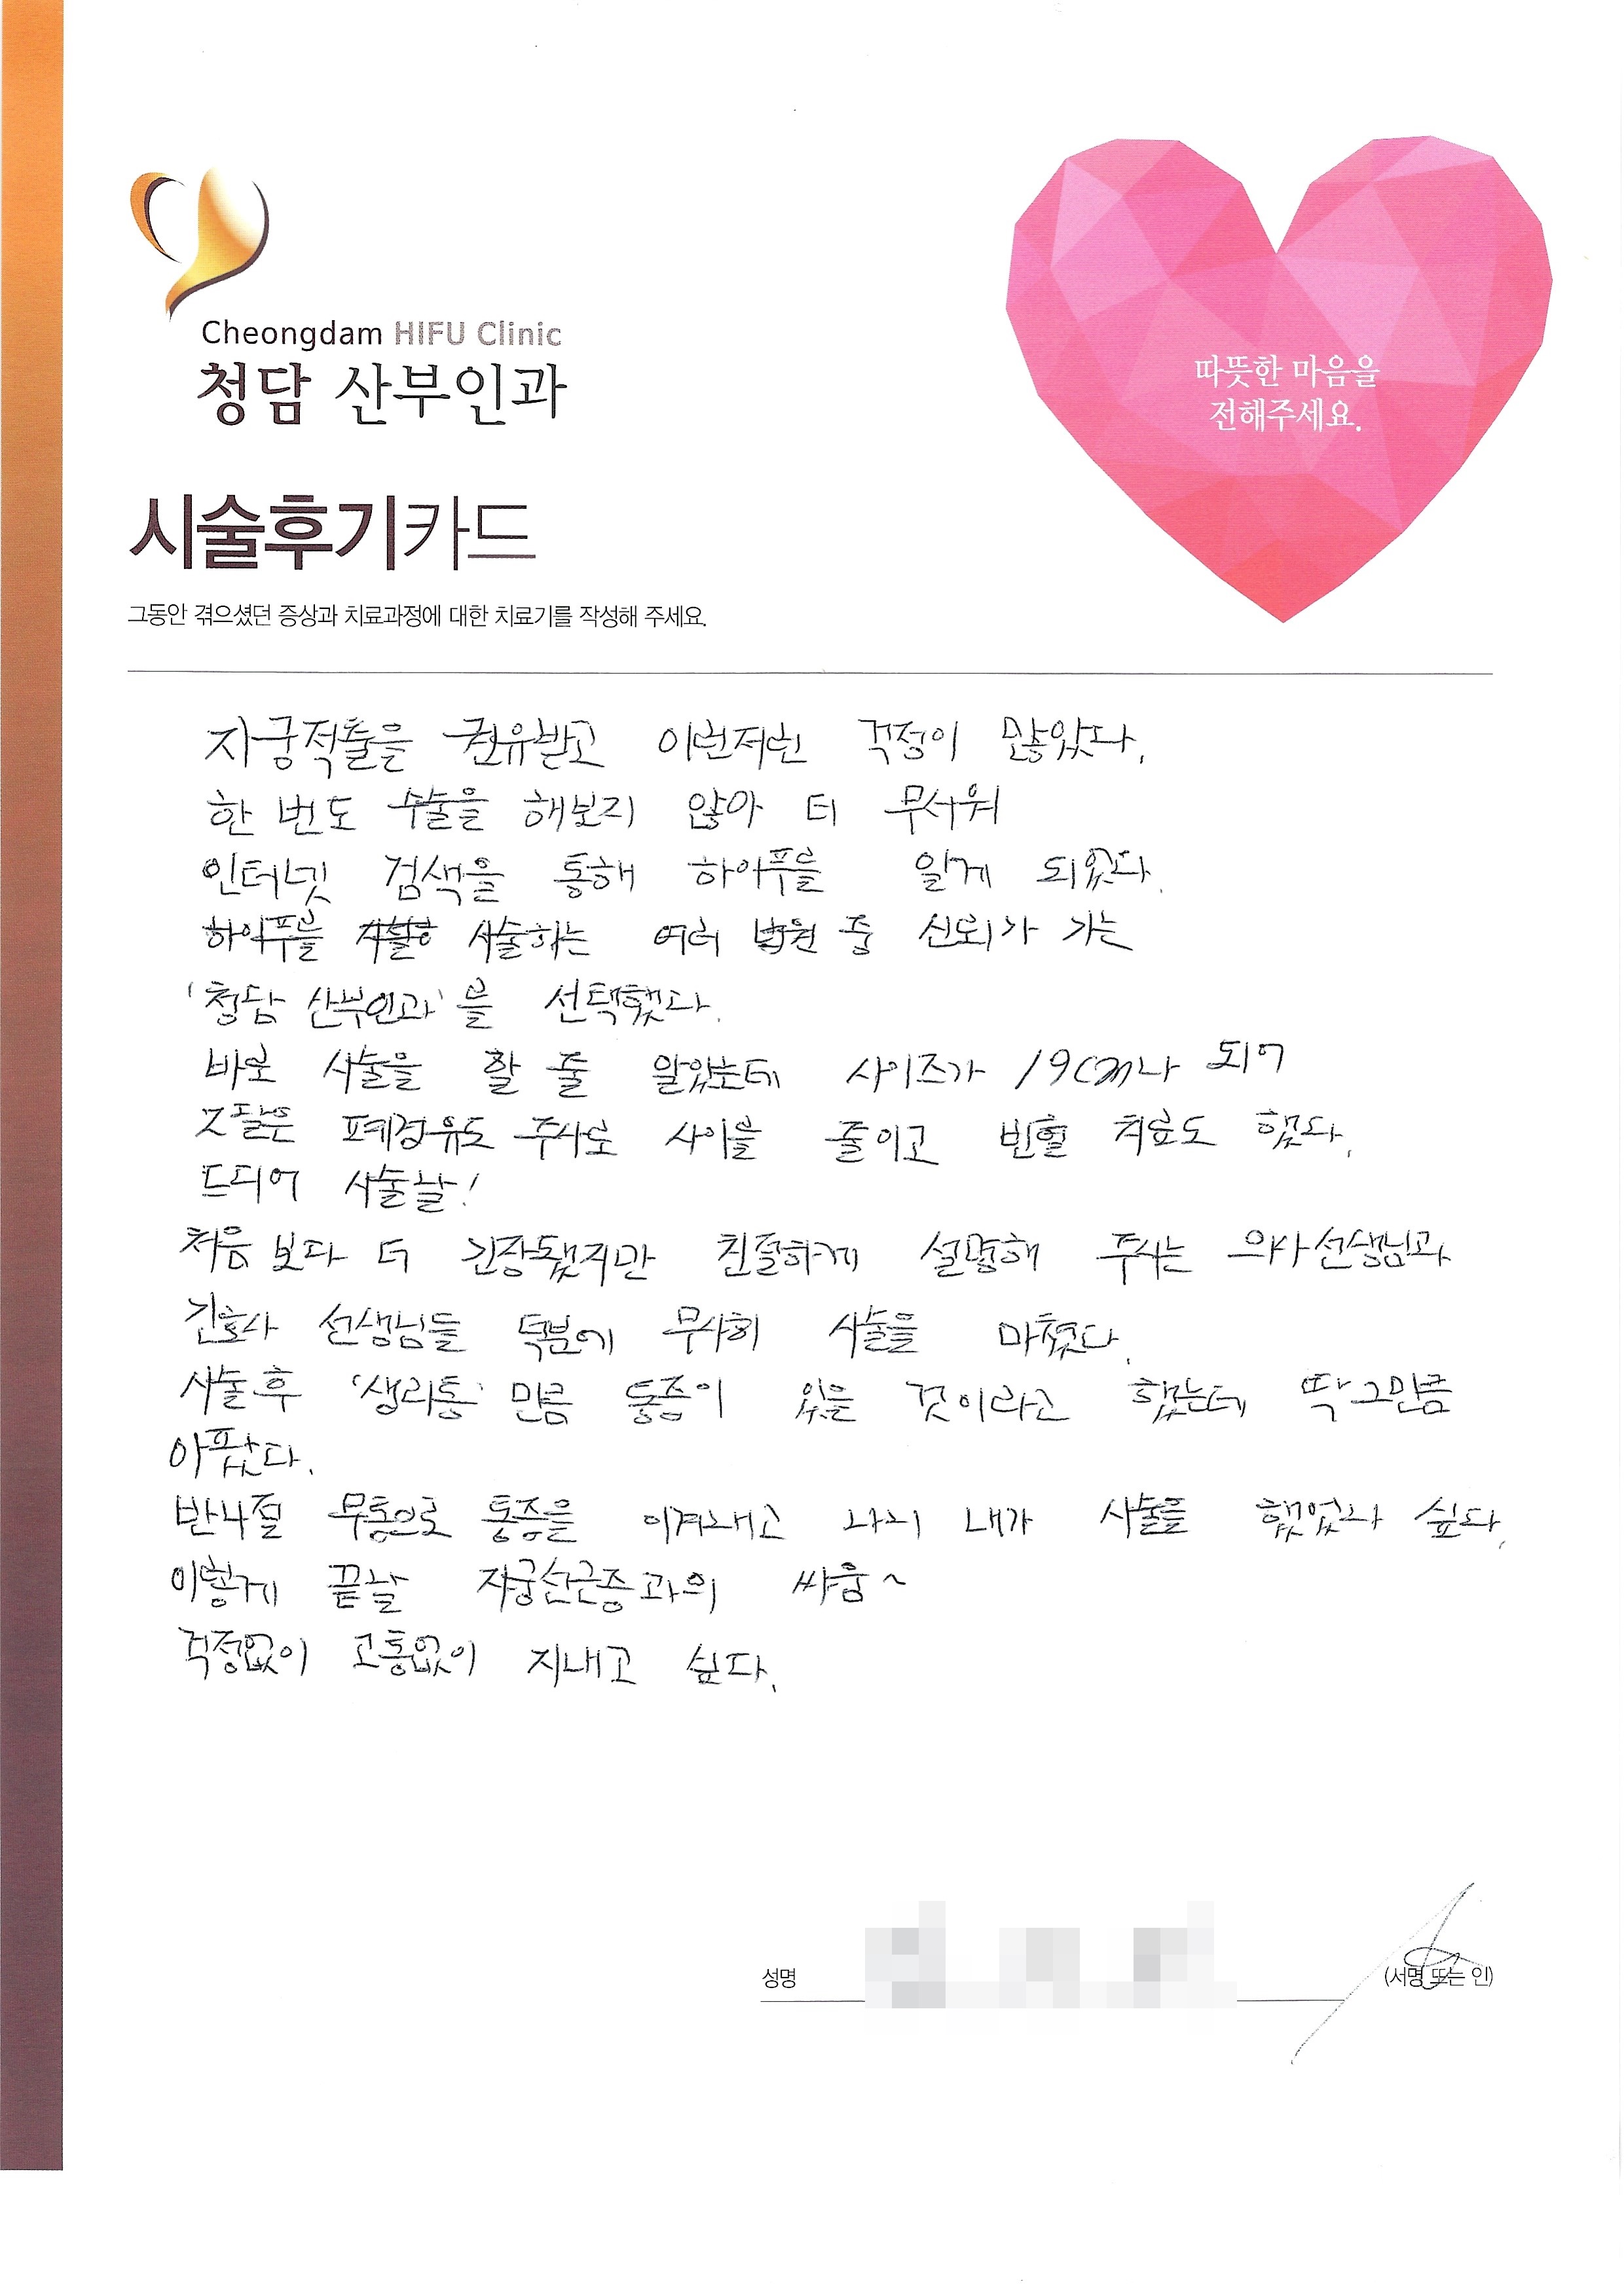 Cheongdam HIFU Clinic
청담 산부인과
따뜻한 마음을
전해주세요.
시술후기카드
그동안 겪으셨던 증상과 치료과정에 대한 치료기를 작성해 주세요.
자궁적출을 권유받고 이런저런 걱정이 많았다.
한 번도 수술을 해보지 않아 더 무서워
인터넷 검색을 통해 하이푸를 알게 되었다.
하이푸를 시술하는 여러 병원 중 신뢰가 가는
'청담 산부인과'를 선택했다.
바로 시술을 할 줄 알았는데 사이즈가 19cm나 되어
폐경유도 주사로 사이를 줄이고 빈혈 치료도 했다.
드디어 시술날!
처음 보다 더 긴장됐지만 친절하게 설명해 주시는 의사선생님과
간호사 선생님들 덕분에 무사히 시술을 마쳤다.
시술 후 '생리통' 만큼 통증이 있을 것이라고 했는데 딱 그만큼
아팠다.
반나절 무통으로 통증을 이겨내고 나니 내가 시술을 했었나 싶다.
이렇게 끝날 자궁선근증과의 싸움~
걱정없이 고통없이 지내고 싶다.
성명
(서명 또는 인)